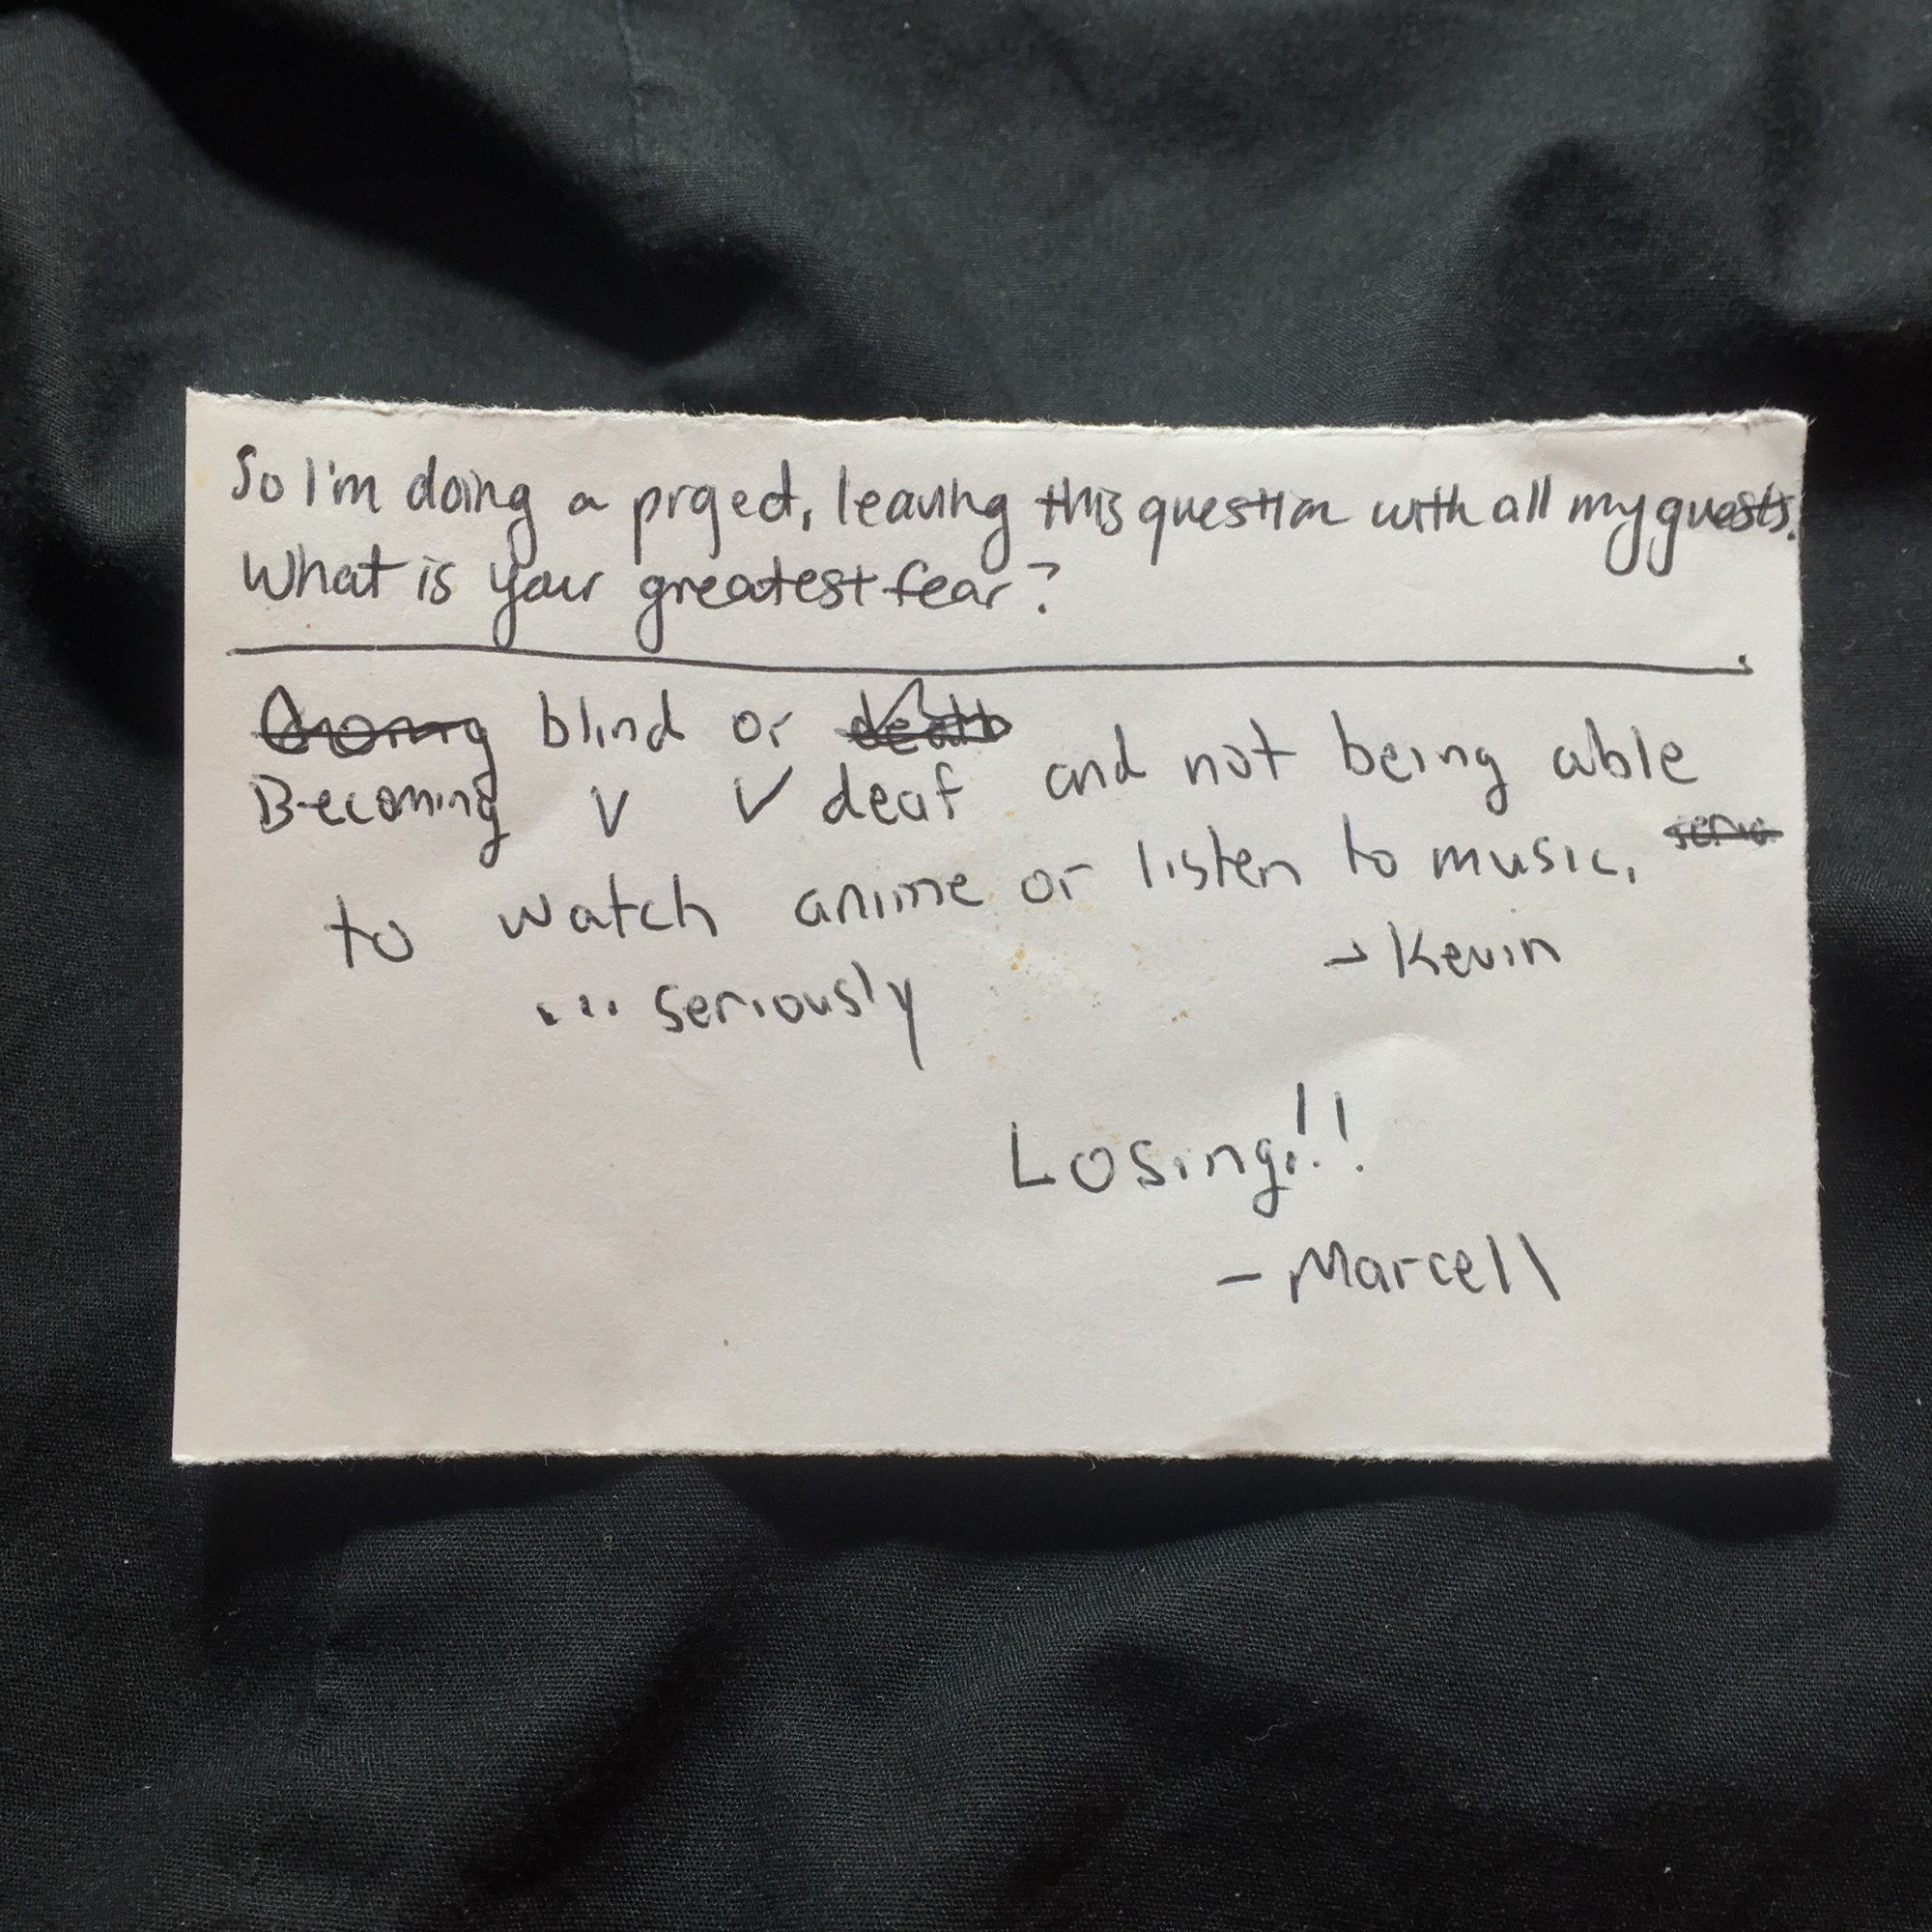 So I'm doing a project, leaving this question with all my guests.
What is your greatest fear?
blind or
Becoming V V deaf and not being able
to watch anime or listen to music.
→ Kevin
... seriously
Losing!!!
- Marcell